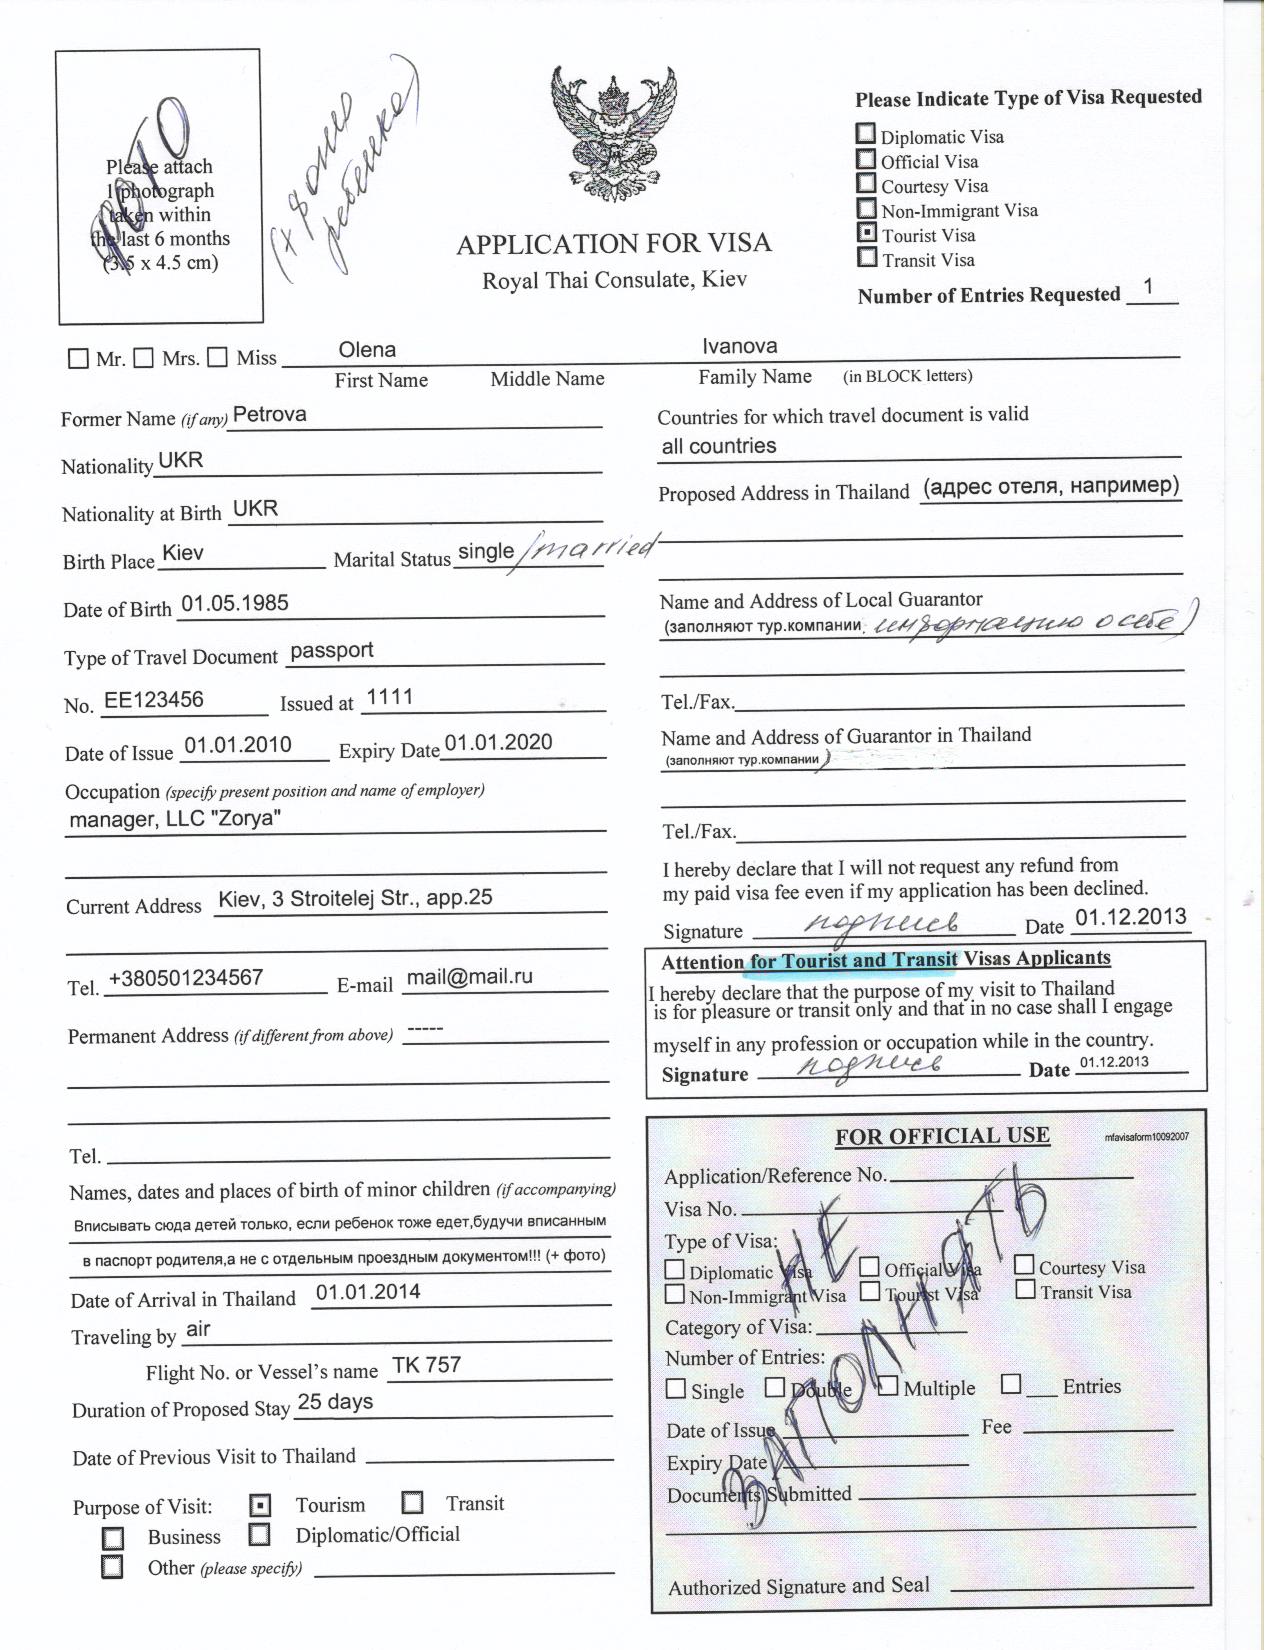 ФОТО
Please attach
1 photograph
taken within
the last 6 months
(3.5 x 4.5 cm)
(+ фото
ребенка)
APPLICATION FOR VISA
Royal Thai Consulate, Kiev
Please Indicate Type of Visa Requested
Diplomatic Visa
Official Visa
Courtesy Visa
Non-Immigrant Visa
Tourist Visa
Transit Visa
Number of Entries Requested 1
Mr. Mrs. Miss Olena Ivanova
First Name Middle Name Family Name (in BLOCK letters)
Former Name (if any) Petrova
Nationality UKR
Nationality at Birth UKR
Birth Place Kiev Marital Status single /married
Date of Birth 01.05.1985
Type of Travel Document passport
No. EE123456 Issued at 1111
Date of Issue 01.01.2010 Expiry Date 01.01.2020
Occupation (specify present position and name of employer)
manager, LLC "Zorya"
Current Address Kiev, 3 Stroitelej Str., app.25
Tel. +380501234567 E-mail mail@mail.ru
Permanent Address (if different from above) -----
Tel.
Names, dates and places of birth of minor children (if accompanying)
Вписывать сюда детей только, если ребенок тоже едет,будучи вписанным
в паспорт родителя,а не с отдельным проездным документом!!! (+ фото)
Date of Arrival in Thailand 01.01.2014
Traveling by air
Flight No. or Vessel's name TK 757
Duration of Proposed Stay 25 days
Date of Previous Visit to Thailand
Purpose of Visit: Tourism Transit
Business Diplomatic/Official
Other (please specify)
Countries for which travel document is valid
all countries
Proposed Address in Thailand (адрес отеля, например)
Name and Address of Local Guarantor
(заполняют тур.компании, информацию о себе)
Tel./Fax.
Name and Address of Guarantor in Thailand
(заполняют тур.компании)
Tel./Fax.
I hereby declare that I will not request any refund from
my paid visa fee even if my application has been declined.
Signature подпись Date 01.12.2013
Attention for Tourist and Transit Visas Applicants
I hereby declare that the purpose of my visit to Thailand
is for pleasure or transit only and that in no case shall I engage
myself in any profession or occupation while in the country.
Signature подпись Date 01.12.2013
FOR OFFICIAL USE mfavisaform10092007
Application/Reference No.
Visa No.
Type of Visa:
Diplomatic Visa Official Visa Courtesy Visa
Non-Immigrant Visa Tourist Visa Transit Visa
Category of Visa:
Number of Entries:
Single Double Multiple ___ Entries
Date of Issue Fee
Expiry Date
Documents Submitted
Authorized Signature and Seal
НЕ
ЗАПОЛНЯТЬ